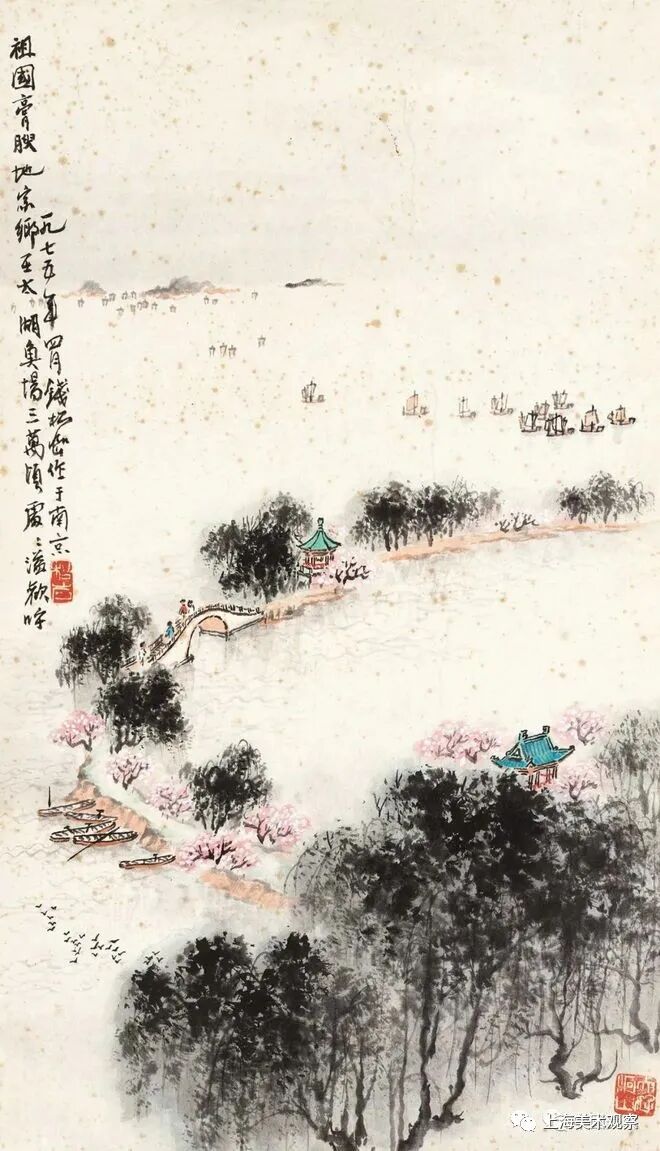 祖國膏腴地家鄉在太湖魚場三萬頃處〻溢欢呼
一九七五年四月錢松嵒作于南京
大好河山
上海美术观察